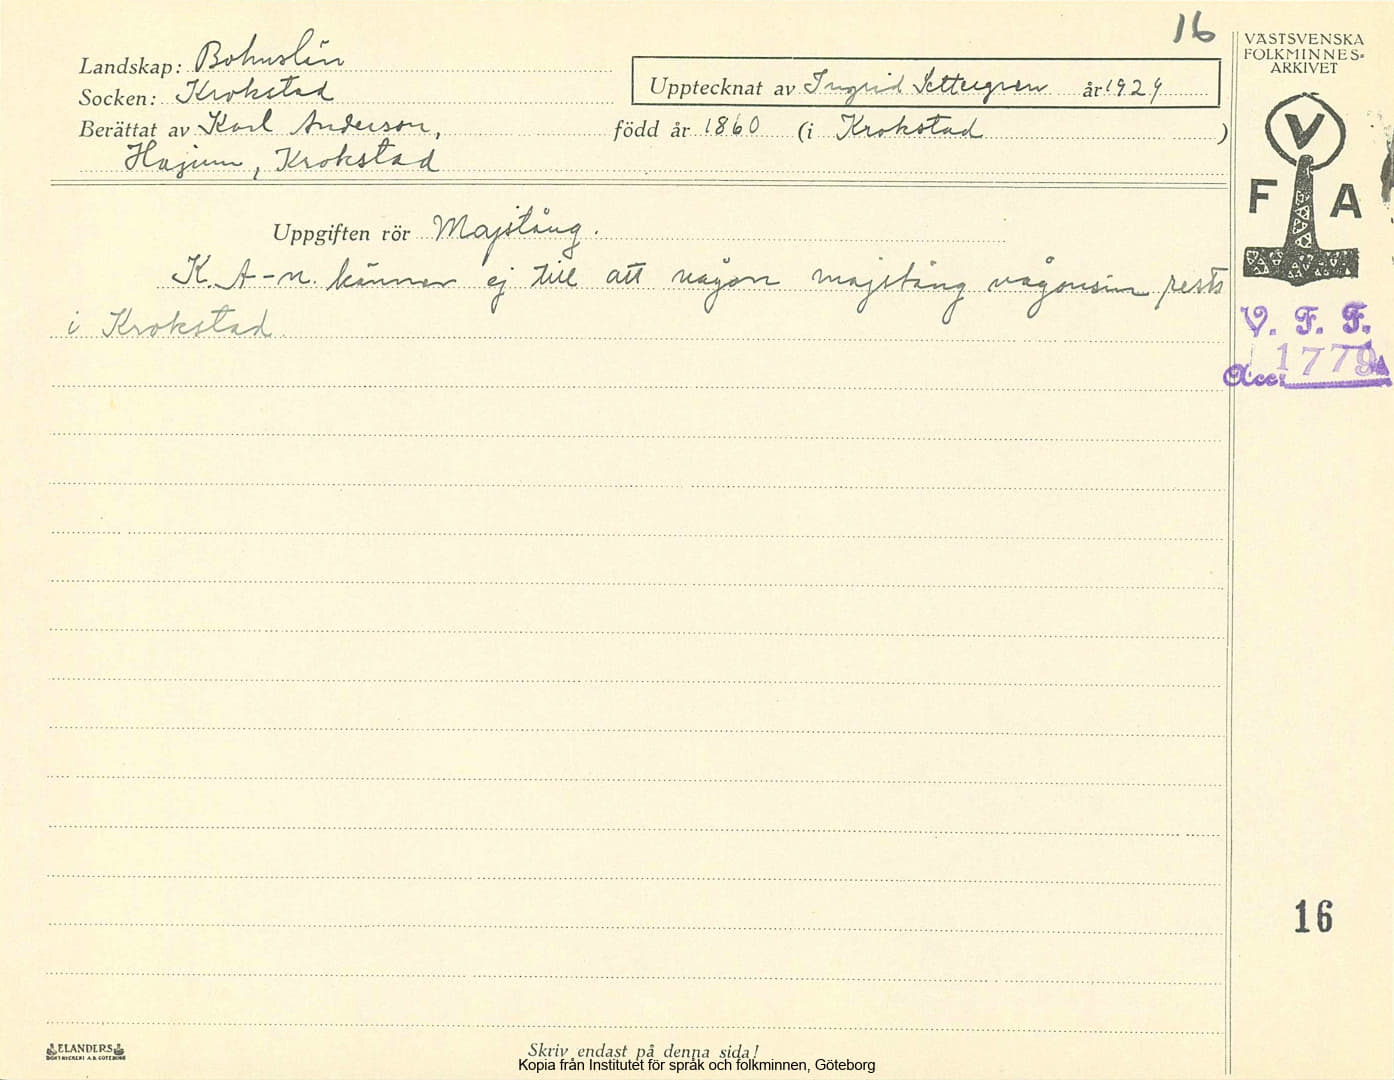 16
Landskap: Bohuslän
Socken: Krokstad
Upptecknat av Ingrid Settergren år 1929
Berättat av Karl Anderson, född år 1860 (i Krokstad )
Hajum, Krokstad
Uppgiften rör Majstång.
K. A-n. känner ej till att någon majstång någonsin rests
i Krokstad.
VÄSTSVENSKA
FOLKMINNES-
ARKIVET
V
F A
V. F. F.
Acc: 1779
16
ELANDERS
BOKTRYCKERI A.B. GÖTEBORG
Skriv endast på denna sida!
Kopia från Institutet för språk och folkminnen, Göteborg